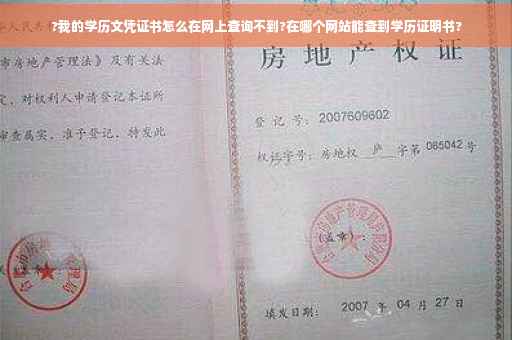 ?我的学历文凭证书怎么在网上查询不到?在哪个网站能查到学历证明书?
市房地产管理法》及有关法
定，对权利人申请登记本证所
审查属实，准予登记，特发此
房地产权
登记号：2007609602
权证字号：房地权 庐 字第 085042 号
(盖章)：
填发日期： 2007 年 04 月 27 日